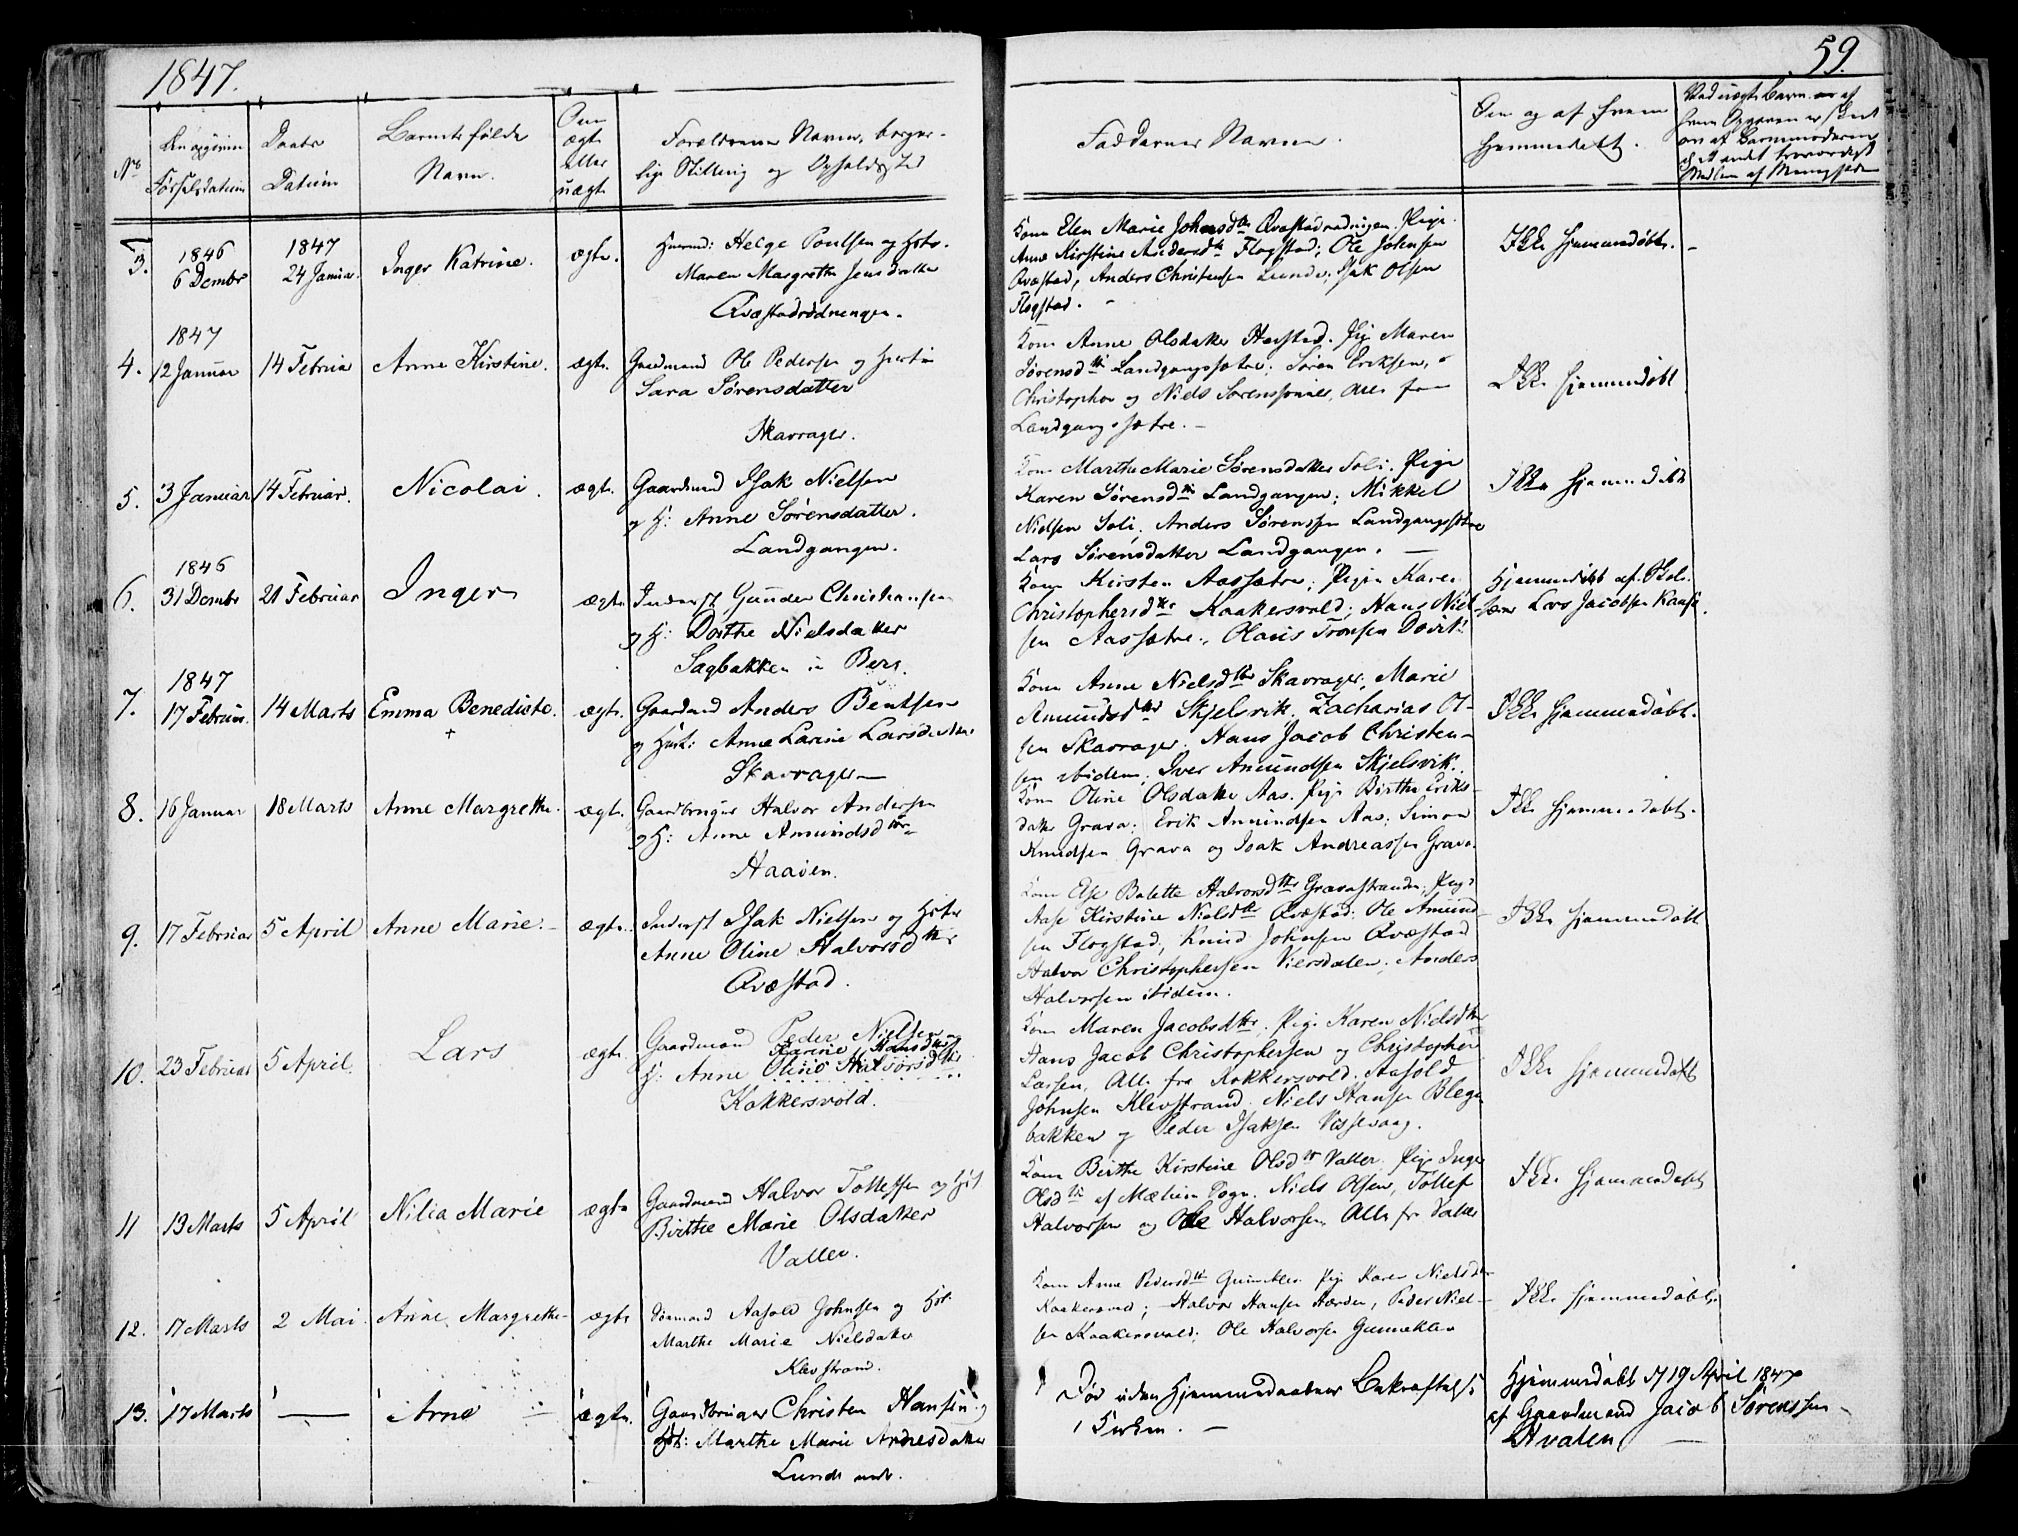 1847.
59.
No
Den opgivne
Fødselsdatum
Daabs
Datum
Barnets fulde
Navn.
Om
ægte
eller
uægte
Forældrenes Navne, borger-
lige Stilling og Opholdssted
Faddernes Navne.
Om og af hvem
hjemmedøbt.
3.
1846
6 Dembr
1847
24 Januar
Inger Katrine.
ægte.
Helge Poulsen og
Maren Margrethe Jensdatter
Kone Elen Marie Johnsdtr Pige
Anne Kirstine Andersdtr Flogstad; Ole Johnsen
Qvæstad, Anders Christensen Lunde; Isak Olsen
Flogstad.
Ikke hjemmedøbt.
4.
1847
12 Januar
14 Februar
Anne Kirstine.
ægte.
Gaardmand Ole Pedersen og Hustru
Sara Sørensdatter
Skavrager.
Kone Anne Olsdatter Pige Maren
Sørensdtr Landgangssætre; Søren Eriksen,
Christopher og Niels Sørenssønner, Alle fra
Landgangssætre.
Ikke hjemmedøbt
5.
3 Januar
14 Februar.
Nicolai.
ægte.
Gaardmand Isak Nielsen
og H: Anne Sørensdatter.
Landgangen.
Kone Marthe Marie Sørensdatter Soli. Pige
Karen Sørensdtr Landgangen; Mikkel
Nielsen Soli, Anders Sørensen Landgangssætre
Lars Sørensdatter Landgangen.
Ikke hjemmedøbt
6.
1846
31 Dembr
21 Februar
Inger
ægte
Inderst Gunder Christiansen
og H: Dorthe Nielsdatter
Sagbakken i Berg.
Kone Kirsten Aassætre; Pigen Karen
Christophersdtr Kaakersvold; Hans Niel-
sen Aassætre; Olaus Tronsen
Hjemmedøbt af Skole-
Lars Jacobsen
7.
1847
17 Februar
14 Marts
Emma Benedicte.
+
ægte.
Gaardmand Anders Bentsen
og Hust: Anne Larine Larsdatter
Skavrager
Kone Anne Nielsdtr Skavrager, Marie
Amundsdtr Skjelsvik. Zacharias Ol-
sen Skavrager. Hans Jacob Christen-
sen ibidem. Iver Amundsen Skjelsvik.
Ikke hjemmedøbt.
8.
16 Januar
18 Marts
Anne Margrethe.
ægte.
Gaardbruger Halvor Andersen
og H: Anne Amundsdtr
Haaøen.
Kone Oline Olsdatter Aas. Pige Birthe Eriks-
datter Grava; Erik Amundsen Aas; Simon
Knudsen Grava og Isak Andreassen Grava.
Ikke hjemmedøbt.
9.
17 Februar
5 April
Anne Marie.
ægte.
Inderst Isak Nielsen og Hstr
Anne Oline Halvorsdtr
Qvæstad.
Kone Else Bolette Halvorsdtr Gravastranden; Pige
Aase Kirstine Nielsdtr Qvæstad; Ole Amund-
sen Flogstad, Knud Johnsen Qvæstad
Halvor Christophersen Viersdalen; Anders
Halvorsen ibidem.
Ikke hjemmedøbt
10.
23 Februar
5 April.
Lars
ægte.
Gaardmand Peder Nielsen og
Karine Hansdtr
H: Anne Oline Halvorsdtr
Kokkersvold.
Kone Maren Jacobsdtr. Pige Karen Nielsdtr
Hans Jacob Christophersen og Christopher
Larsen, Alle fra Kokkersvold. Aasold
Johnsen Klevstrand. Niels Hansen Blege-
bakken og Peder Isaksen Vissevaag.
Ikke hjemmedøbt
11
13 Marts
5 April
Nilia Marie
ægte
Gaardmand Halvor Tollefsen og Hst
Birthe Marie Olsdatter
Valler.
Kone Birthe Kirstine Olsdtr Valler. Pige Inge
Olsdtr af Mælum Sogn. Niels Olsen, Tollef
Halvorsen og Ole Halvorsen, Alle fr
Ikke hjemmedøbt
12.
17 Marts
2 Mai
Anne Margrethe
ægte
Aasold Johnsen og Hst.
Marthe Marie Nielsdatter
Klevstrand.
Kone Anne Pedersdtr Pige Karen Nielsdtr
Halvor Hansen Peder Niel-
sen Kaakersvold; Ole Halvorsen
Ikke hjemmedøbt.
13.
17 Marts
Arne
ægte.
Gaardbruger Christen Hansen og
Hst: Marthe Marie Andresdatter
Lunde
Død uden Hjemmedaabens Bekræftelse
i Kirken.
Hjemmedøbt d 19 April 1847
af Gaardmand Jacob Sørenssen